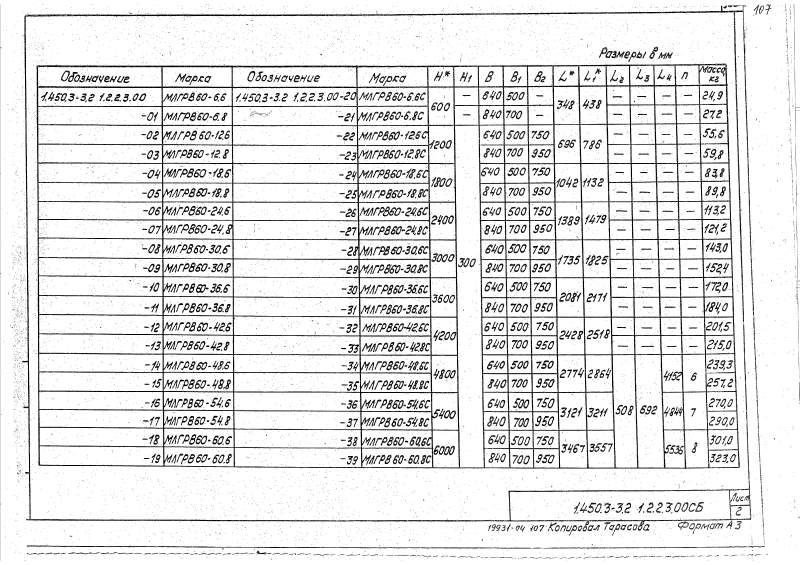 107
Размеры в мм
Обозначение Марка Обозначение Марка H* H1 B B1 B2 L* L1* L2 L3 L4 n Масса, кг
1.450.3-3.2 1.2.2.3.00 МЛГРВ60-6.6 1.450.3-3.2 1.2.2.3.00-20 МЛГРВ60-6.6С 600 — 640 500 — 348 438 — — — — 24,9
-01 МЛГРВ60-6.8 -21 МЛГРВ60-6.8С — 840 700 — — — — — 27,2
-02 МЛГРВ60-12.6 -22 МЛГРВ60-12.6С 1200 300 640 500 750 696 786 — — — — 55,6
-03 МЛГРВ60-12.8 -23 МЛГРВ60-12.8С 840 700 950 — — — — 59,8
-04 МЛГРВ60-18.6 -24 МЛГРВ60-18.6С 1800 640 500 750 1042 1132 — — — — 83,8
-05 МЛГРВ60-18.8 -25 МЛГРВ60-18.8С 840 700 950 — — — — 89,8
-06 МЛГРВ60-24.6 -26 МЛГРВ60-24.6С 2400 640 500 750 1389 1479 — — — — 113,2
-07 МЛГРВ60-24.8 -27 МЛГРВ60-24.8С 840 700 950 — — — — 121,2
-08 МЛГРВ60-30.6 -28 МЛГРВ60-30.6С 3000 640 500 750 1735 1825 — — — — 143,0
-09 МЛГРВ60-30.8 -29 МЛГРВ60-30.8С 840 700 950 — — — — 152,4
-10 МЛГРВ60-36.6 -30 МЛГРВ60-36.6С 3600 640 500 750 2081 2171 — — — — 172,0
-11 МЛГРВ60-36.8 -31 МЛГРВ60-36.8С 840 700 950 — — — — 184,0
-12 МЛГРВ60-42.6 -32 МЛГРВ60-42.6С 4200 640 500 750 2428 2518 — — — — 201,5
-13 МЛГРВ60-42.8 -33 МЛГРВ60-42.8С 840 700 950 — — — — 215,0
-14 МЛГРВ60-48.6 -34 МЛГРВ60-48.6С 4800 640 500 750 2774 2864 508 692 4152 6 239,3
-15 МЛГРВ60-48.8 -35 МЛГРВ60-48.8С 840 700 950 257,2
-16 МЛГРВ60-54.6 -36 МЛГРВ60-54.6С 5400 640 500 750 3121 3211 4844 7 270,0
-17 МЛГРВ60-54.8 -37 МЛГРВ60-54.8С 840 700 950 290,0
-18 МЛГРВ60-60.6 -38 МЛГРВ60-60.6С 6000 640 500 750 3467 3557 5536 8 301,0
-19 МЛГРВ60-60.8 -39 МЛГРВ60-60.8С 840 700 950 323,0
1.450.3-3.2 1.2.2.3.00СБ
Лист
2
19931-04 107 Копировал Тарасова Формат А3